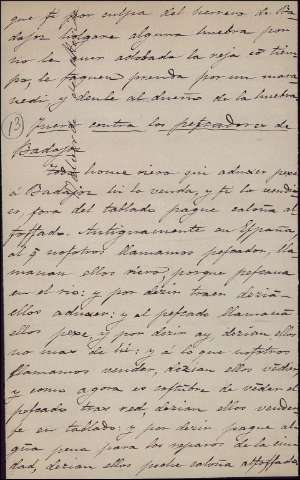 que fi por culpa del herrero de Ba-
dajoz holgare alguna huebra por
no le aver adobada la reja co tiem
po, le saquen prenda por un mara
vedi y denle al dueno de la huebra
13 Fuero contra los pescadores de
Badajoz
Todo home riero qui aduxer pexe
a Badajoz li lo venda, y fi lo vendi
es, fora del tablado pague caloña al
foffado. Antiguamente en España
al q nosotros llamamos pescador, lla
mavan ellos riero, porque pescava
en el rio: y por dezir traen dezian
ellos aduxer: y al pescado llamaven
ellos pexe, y por dezir ay dezian ellos
no mas de hi: y a lo que nosotros
llamamos vender, dezian ellos veder,
y como agora es costubre de veder el
pescado tras red, dezian ellos vender
se en tablado: y por dezir pague al
gua pena para los reparos de la ciu
dad, dezian ellos peche caloña al foffado